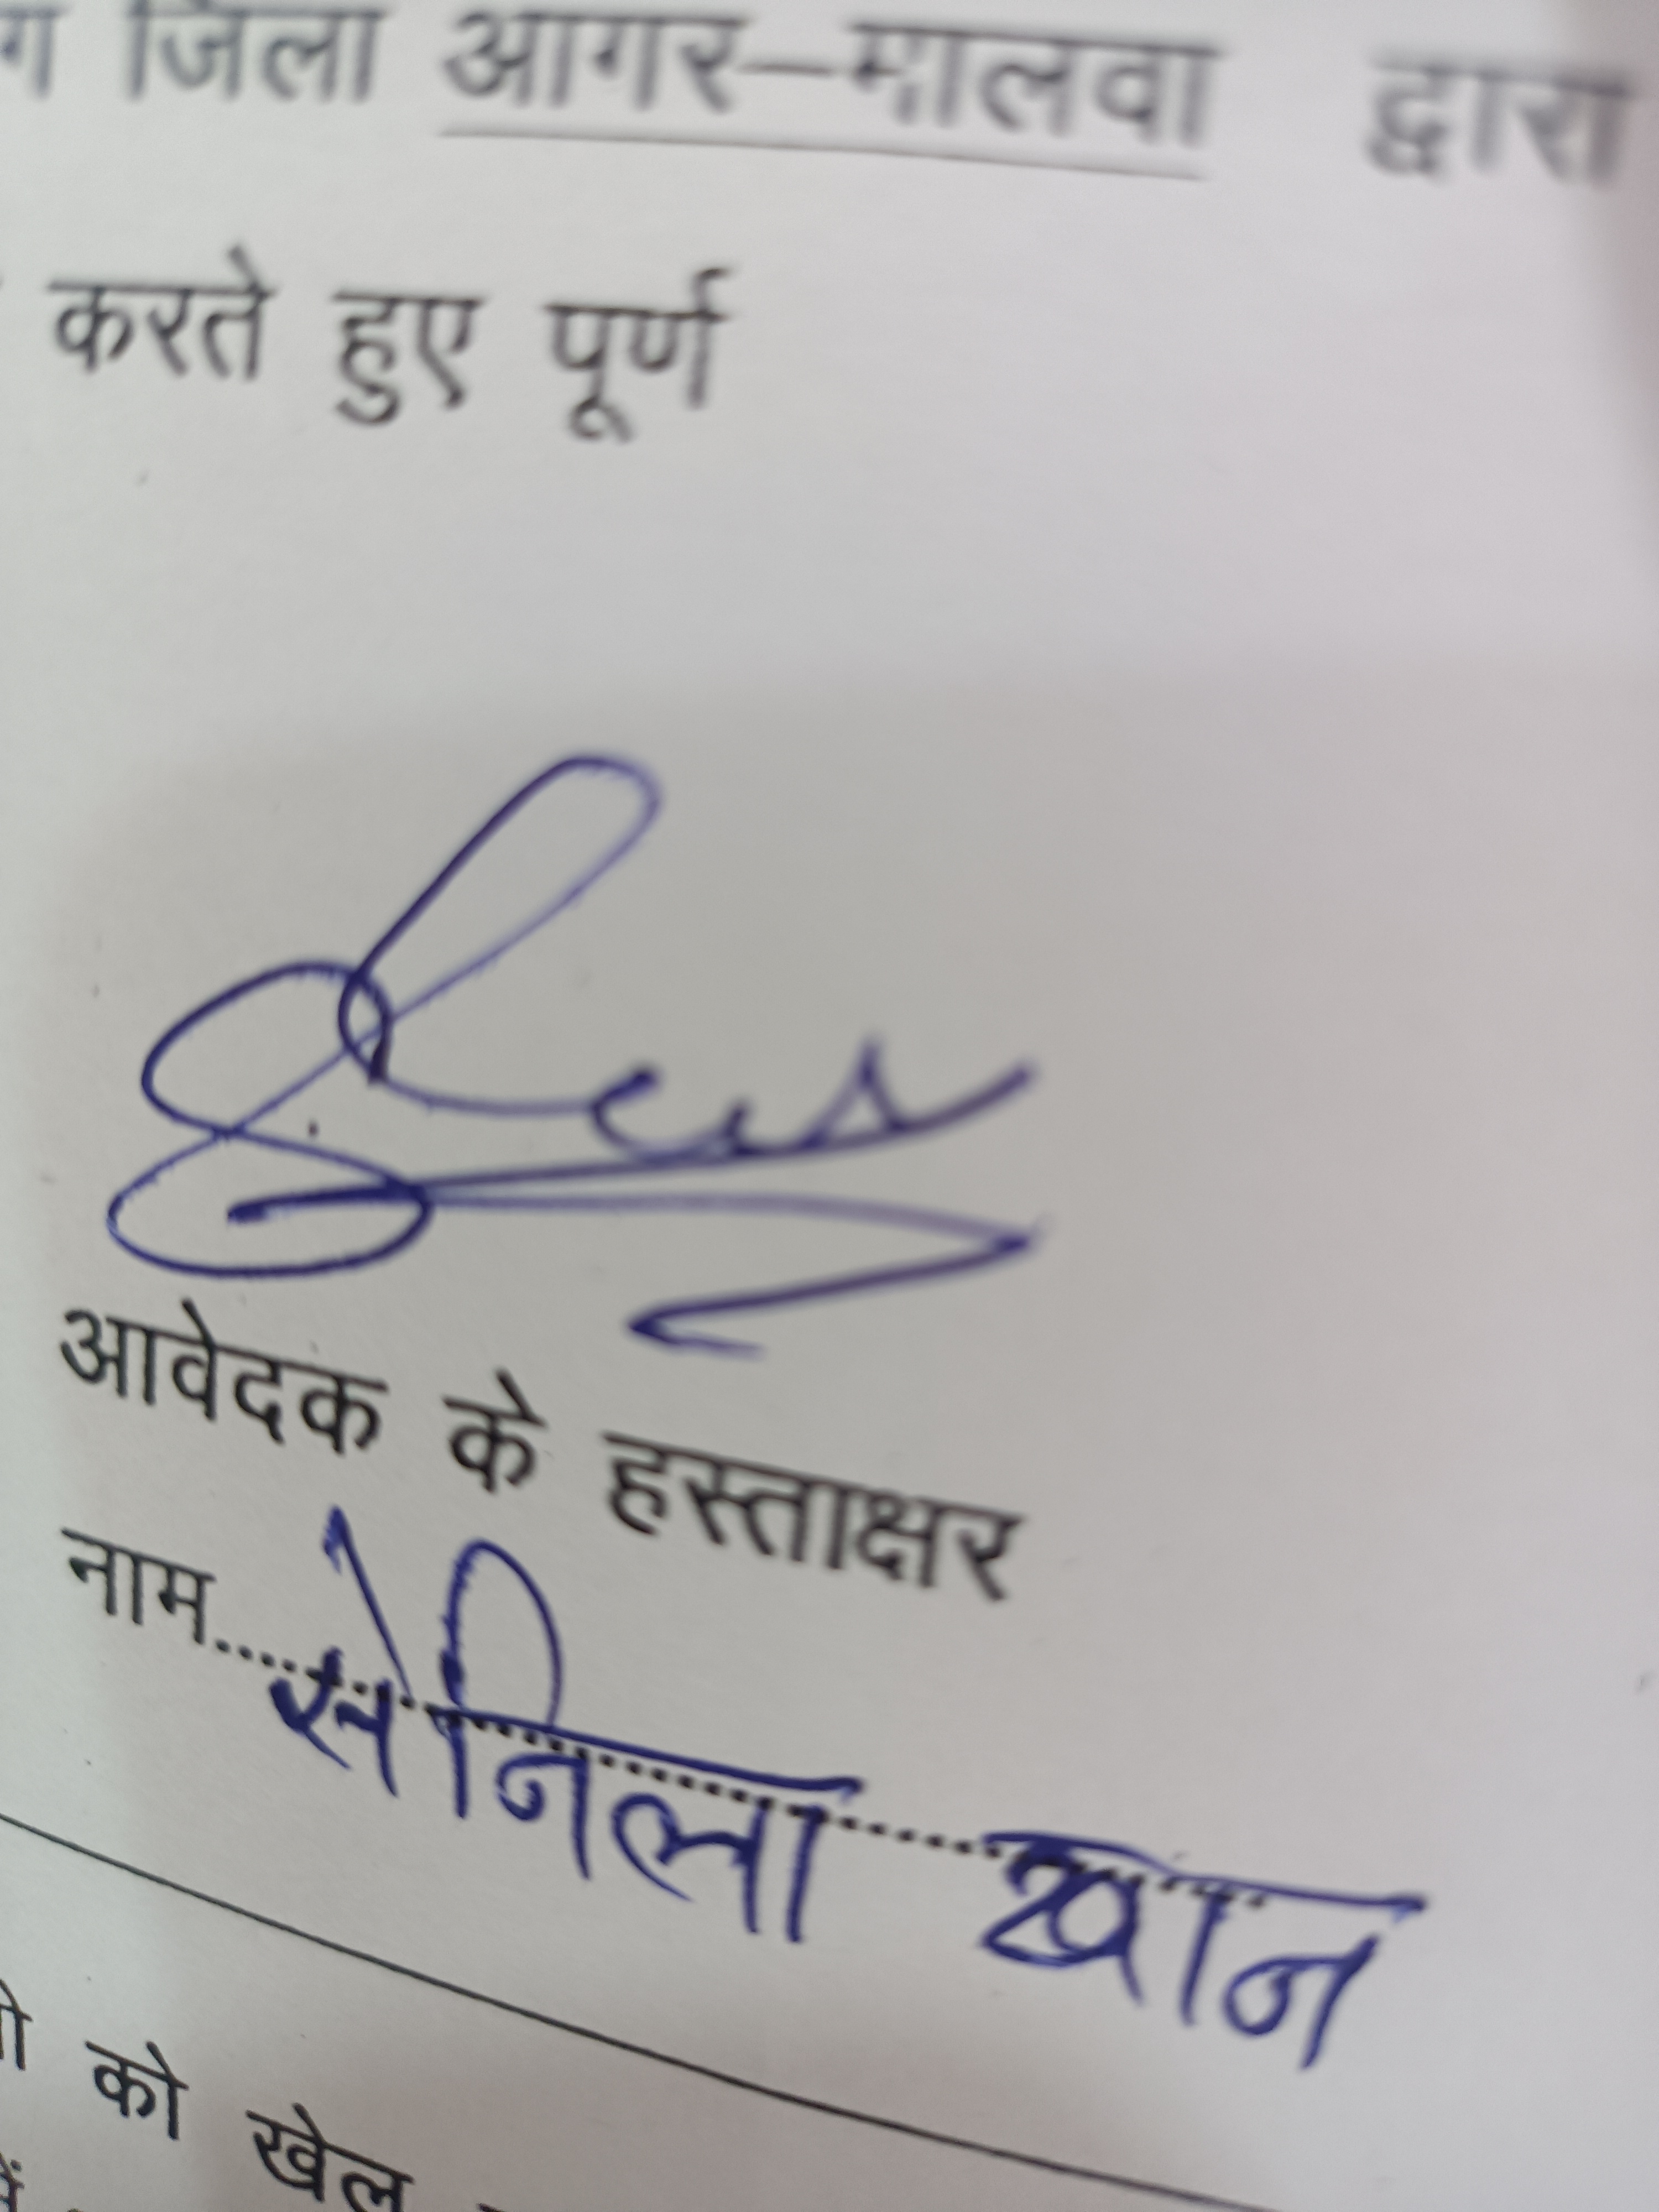 जिला आगर–मालवा द्वारा
करते हुए पूर्ण
आवेदक के हस्ताक्षर
नाम.... सेनिला खान
को खेल